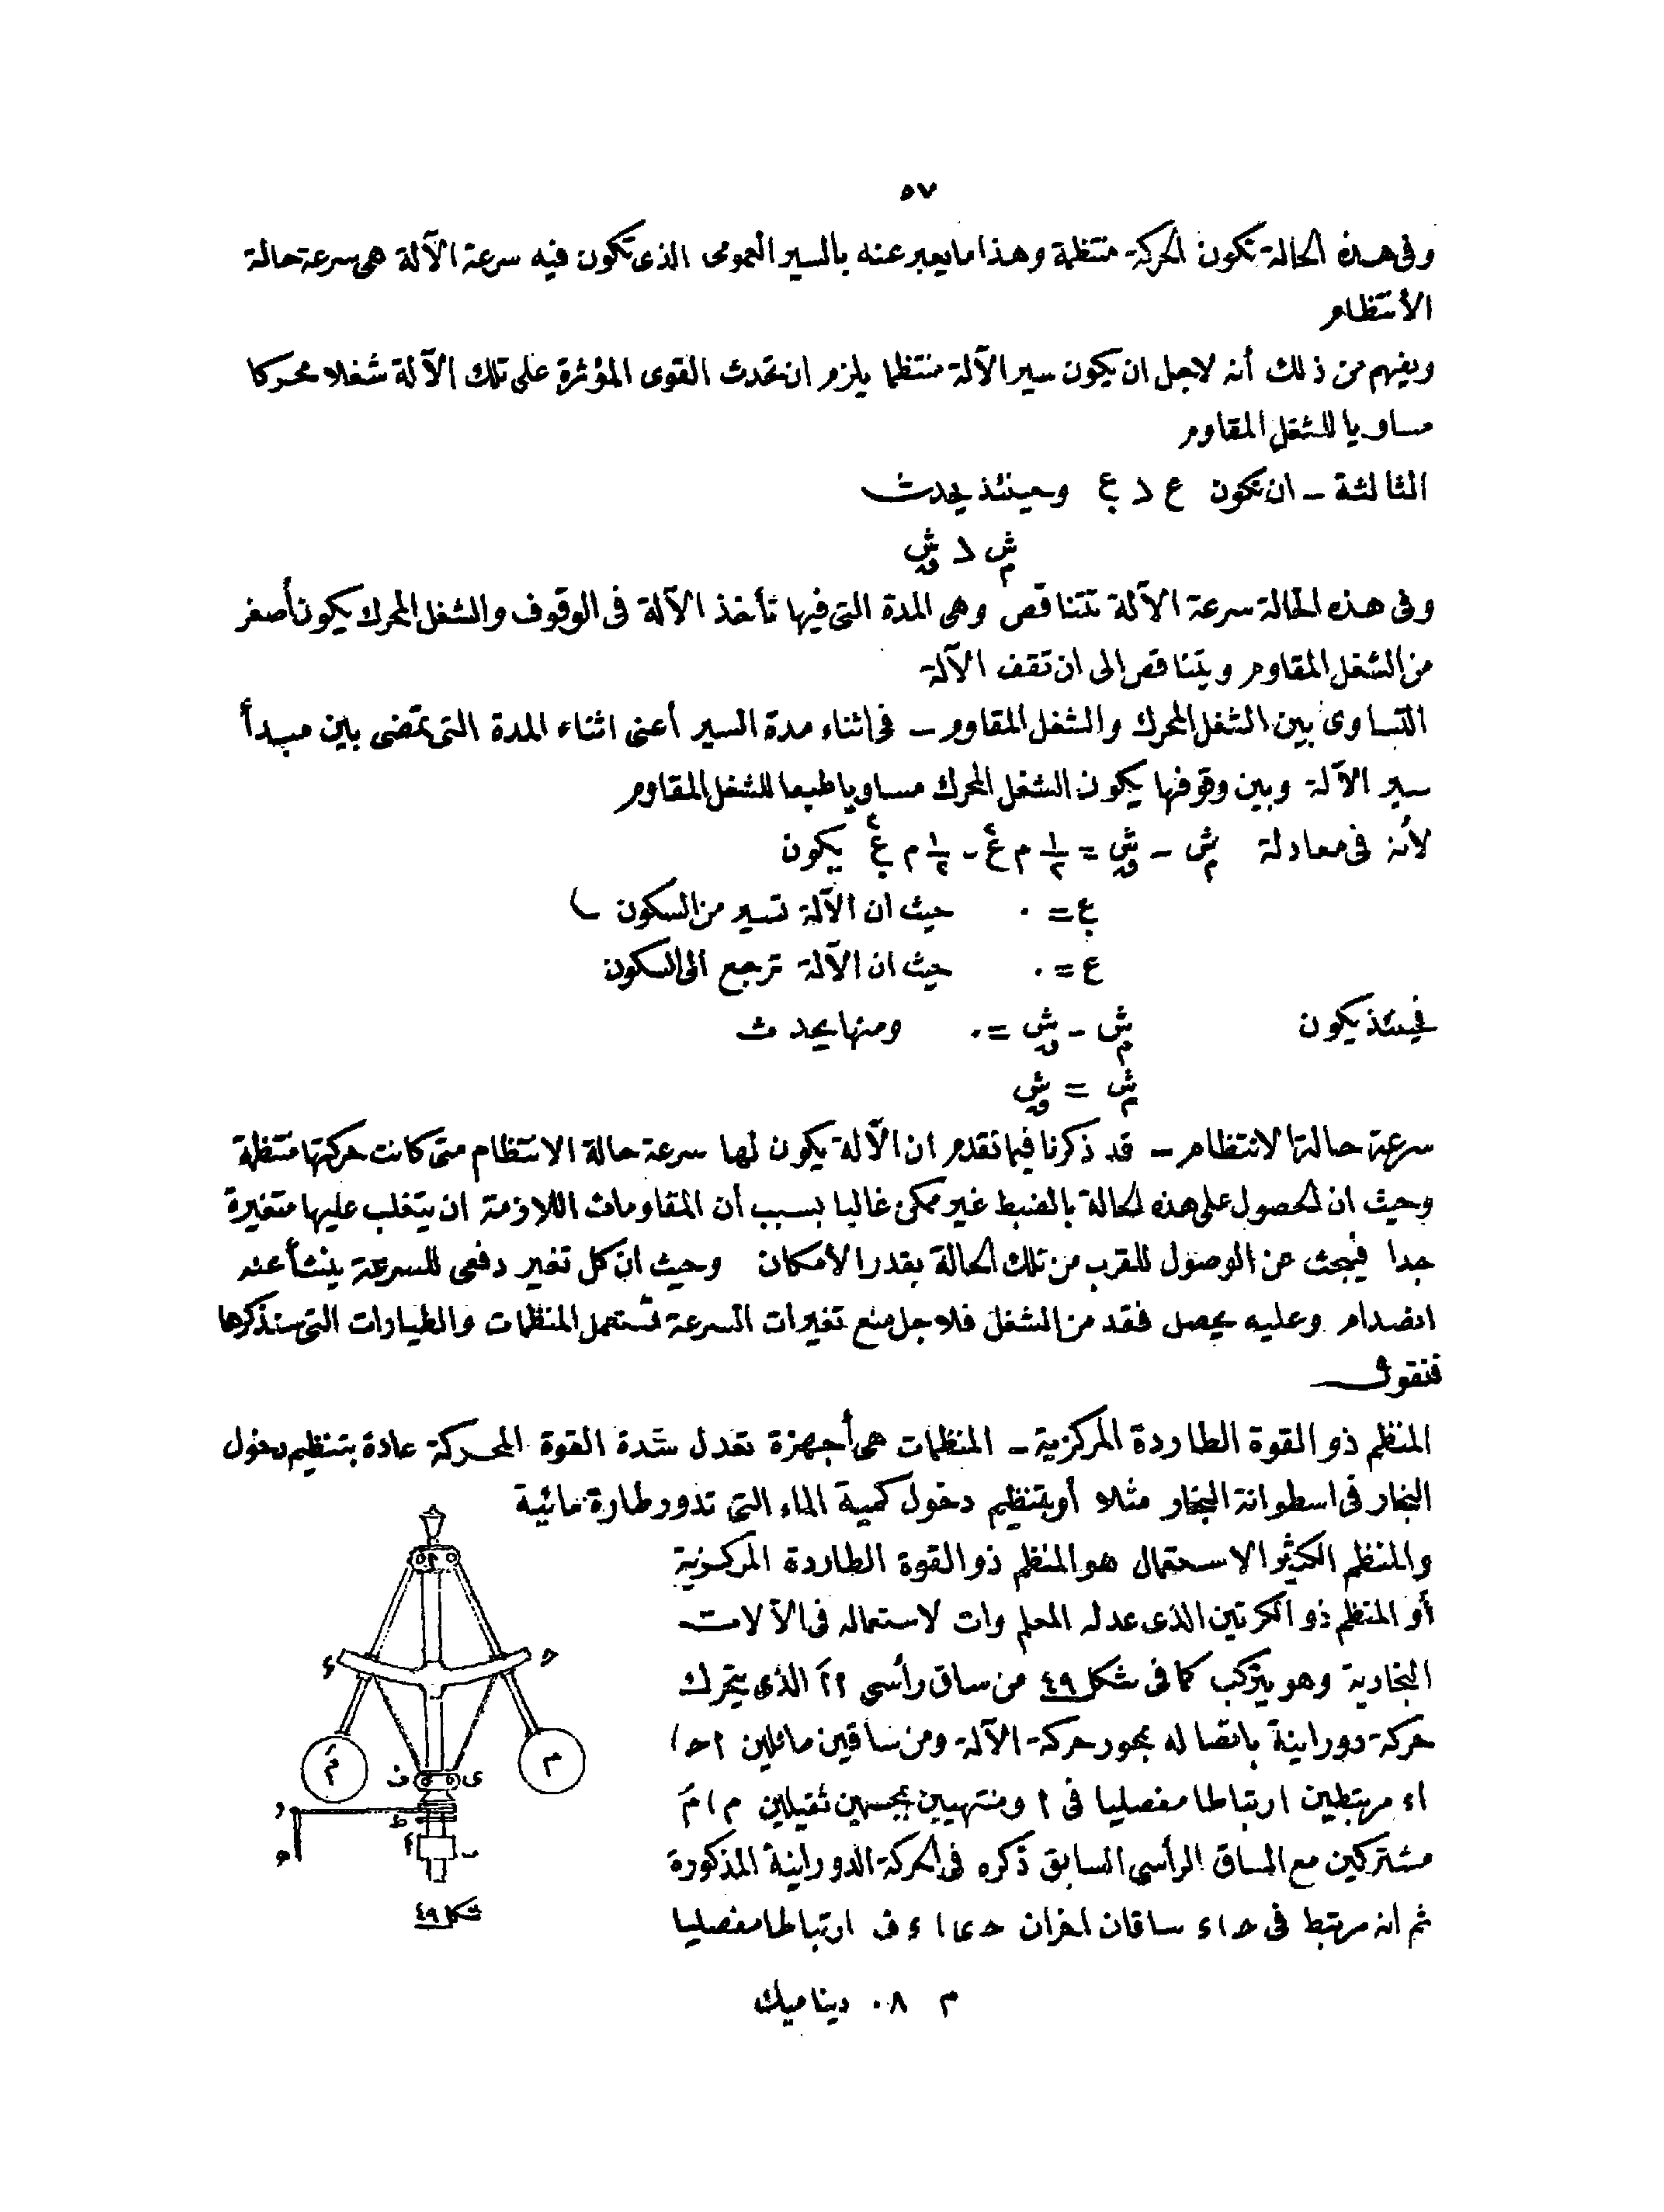 ٥٧
وفى هذه الحالة تكون الحركة منتظمة وهذا ما يعبر عنه بالسير العمومى الذى تكون فيه سرعة الآلة هى سرعة حالة
الأنتظام
ويفهم من ذلك أنه لاجل ان يكون سير الآلة منتظما يلزم ان تحدث القوى المؤثرة على تلك الآلة شغلا محركا
مساويا للشغل المقاوم
الثالثة - ان تكون ع > ع. وحينئذ يحدث
ش م > ش ق
وفى هذه الحالة سرعة الآلة تتناقص وهى المدة التى فيها تأخذ الآلة فى الوقوف والشغل المحرك يكون أصغر
من الشغل المقاوم ويتناقص الى ان تقف الآلة
التساوى بين الشغل المحرك والشغل المقاوم - فى اثناء مدة السير أعنى اثناء المدة التى تمضى بين مبدأ
سير الآلة وبين وقوفها يكون الشغل المحرك مساويا طبعا للشغل المقاوم
لأنه فى معادلة ش م - ش ق = ١/٢ م ع٢ - ١/٢ م ع.٢ يكون
ع. = ٠ حيث ان الآلة تسير من السكون
ع = ٠ حيث ان الآلة ترجع الى السكون
فحينئذ يكون ش م - ش ق = ٠ ومنها يحدث
ش م = ش ق
سرعة حالة الانتظام - قد ذكرنا فيما تقدم ان الآلة يكون لها سرعة حالة الانتظام متى كانت حركتها منتظمة
وحيث ان الحصول على هذه الحالة بالضبط غير ممكن غالبا بسبب أن المقاومات اللازمة ان يتغلب عليها متغيرة
جدا فيبحث عن الوصول للقرب من تلك الحالة بقدر الأمكان وحيث ان كل تغير دفعى للسرعة ينشأ عنه
انصدام وعليه يحصل فقد من الشغل فلاجل منع تغيرات السرعة تستعمل المنظمات والطيارات التى سنذكرها
فنقول
المنظم ذو القوة الطاردة المركزية - المنظمات هى أجهزة تعدل شدة القوة المحركة عادة بتنظيم دخول
البخار فى اسطوانة البخار مثلا أو بتنظيم دخول كمية الماء التى تدور طارة مائية
والمنظم الكثير الاستعمال هو المنظم ذو القوة الطاردة المركزية
أو المنظم ذو الكرتين الذى عدله المعلم وات لاستعماله فى الآلات
البخارية وهو يتركب كما فى شكل ٤٩ من ساق رأسى ا اَ الذى يتحرك
حركة دورانية باتصاله بمحور حركة الآلة ومن ساقين مائلين ا ح ا
ا ء مرتبطين ارتباطا مفصليا فى ا ومنتهيين بجسمين ثقيلين م ا مَ
مشتركين مع الساق الرأسى السابق ذكره فى الحركة الدورانية المذكورة
ثم انه مرتبط فى ح ا ء ساقان اخران ح ى ا ء ف ارتباطا مفصليا
ا
ء ح
مَ م
ف ى
و
ط
اَ ب
ھ
شكل ٤٩
م ٨٠ ديناميك